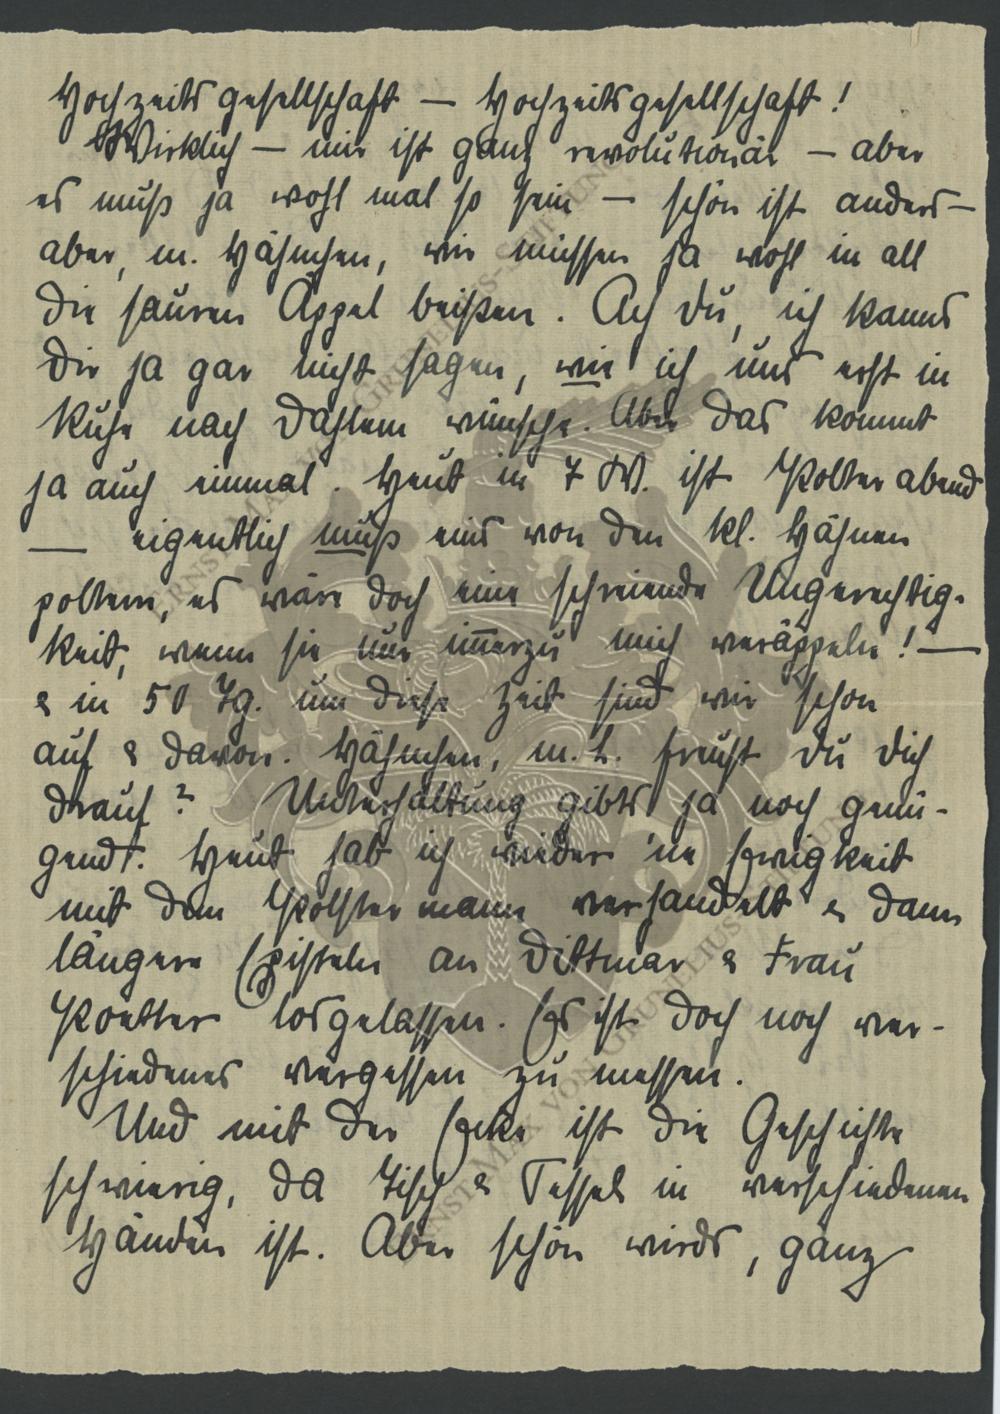 Hochzeitsgesellschaft — Hochzeitsgesellschaft!
Wirklich — mir ist ganz revolutionär — aber
es muß ja wohl mal so sein — schön ist anders —
aber, m. Hähnchen, wir müssen ja wohl in all
die sauren Äppel beißen. Ach du, ich kanns
dir ja gar nicht sagen, wie ich uns erst in
Ruhe nach Dahlem wünsche. Aber das kommt
ja auch einmal. Heut in 7 W. ist Polterabend
— eigentlich muß eins von den kl. Hähnen
poltern, es wäre doch eine schreiende Ungerechtig-
keit, wenn sie nur im̄erzu mich veräppeln! —
& in 50 Tg. um diese Zeit sind wir schon
auf & davon. Hähnchen, m. L. freust du dich
drauf? Unterhaltung gibts ja noch genü-
gend. Heut hab ich wieder 'ne Ewigkeit
mit dem Polstermann verhandelt & dann
längere Episteln an Dittmar & Frau
Poetter losgelassen. Es ist doch noch ver-
schiedenes vergessen zu messen.
Und mit der Ecke ist die Geschichte
schwierig, da Tisch & Sessel in verschiedenen
Händen ist. Aber schön wirds, ganz